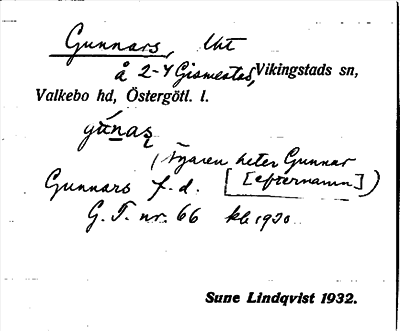 Gunnars, Uht
å 2-4 Gismestad, Vikingstads sn,
Valkebo hd, Östergötl. l.
gúnaʂ
(ägaren heter Gunnar
Gunnars f.d. [efternamn])
G. T. nr. 66 kb 1920
Sune Lindqvist 1932.